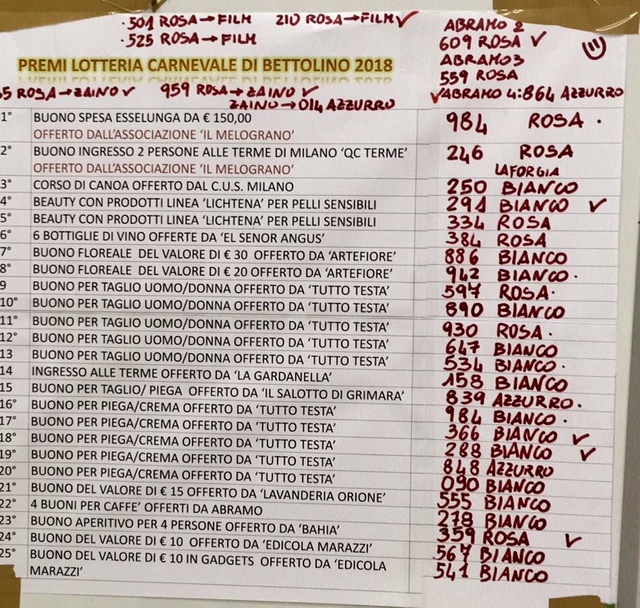 ·501 ROSA→FILM 210 ROSA→FILM✓
·525 ROSA→FILM
ABRAMO 2
609 ROSA ✓
ABRAMO 3
559 ROSA
✓ABRAMO 4:864 AZZURRO
PREMI LOTTERIA CARNEVALE DI BETTOLINO 2018
5 ROSA→ZAINO✓ 959 ROSA→ZAINO ✓
ZAINO→014 AZZURRO
1° BUONO SPESA ESSELUNGA DA € 150,00 984 ROSA ·
OFFERTO DALL'ASSOCIAZIONE 'IL MELOGRANO'
2° BUONO INGRESSO 2 PERSONE ALLE TERME DI MILANO 'QC TERME' 246 ROSA
OFFERTO DALL'ASSOCIAZIONE 'IL MELOGRANO' LAFORGIA
3° CORSO DI CANOA OFFERTO DAL C.U.S. MILANO 250 BIANCO
4° BEAUTY CON PRODOTTI LINEA 'LICHTENA' PER PELLI SENSIBILI 291 BIANCO ✓
5° BEAUTY CON PRODOTTI LINEA 'LICHTENA' PER PELLI SENSIBILI 334 ROSA
6° 6 BOTTIGLIE DI VINO OFFERTE DA 'EL SENOR ANGUS' 384 ROSA
7° BUONO FLOREALE DEL VALORE DI € 30 OFFERTO DA 'ARTEFIORE' 886 BIANCO
8° BUONO FLOREALE DEL VALORE DI € 20 OFFERTO DA 'ARTEFIORE' 942 BIANCO·
9 BUONO PER TAGLIO UOMO/DONNA OFFERTO DA 'TUTTO TESTA' 597 ROSA·
10° BUONO PER TAGLIO UOMO/DONNA OFFERTO DA 'TUTTO TESTA' 890 BIANCO
11° BUONO PER TAGLIO UOMO/DONNA OFFERTO DA 'TUTTO TESTA' 930 ROSA ·
12° BUONO PER TAGLIO UOMO/DONNA OFFERTO DA 'TUTTO TESTA' 647 BIANCO
13 BUONO PER TAGLIO UOMO/DONNA OFFERTO DA 'TUTTO TESTA' 534 BIANCO·
14 INGRESSO ALLE TERME OFFERTO DA 'LA GARDANELLA' 158 BIANCO
15 BUONO PER TAGLIO/ PIEGA OFFERTO DA 'IL SALOTTO DI GRIMARA' 839 AZZURRO·
16° BUONO PER PIEGA/CREMA OFFERTO DA 'TUTTO TESTA' 984 BIANCO·
17° BUONO PER PIEGA/CREMA OFFERTO DA 'TUTTO TESTA' 366 BIANCO ✓
18° BUONO PER PIEGA/CREMA OFFERTO DA 'TUTTO TESTA' 288 BIANCO ✓
19° BUONO PER PIEGA/CREMA OFFERTO DA 'TUTTO TESTA' 848 AZZURRO
20° BUONO PER PIEGA/CREMA OFFERTO DA 'TUTTO TESTA' 090 BIANCO
21° BUONO DEL VALORE DI € 15 OFFERTO DA 'LAVANDERIA ORIONE' 555 BIANCO
22° 4 BUONI PER CAFFE' OFFERTI DA ABRAMO 278 BIANCO
23° BUONO APERITIVO PER 4 PERSONE OFFERTO DA 'BAHIA' 359 ROSA ✓
24° BUONO DEL VALORE DI € 10 OFFERTO DA 'EDICOLA MARAZZI' 567 BIANCO
25° BUONO DEL VALORE DI € 10 IN GADGETS OFFERTO DA 'EDICOLA 541 BIANCO
MARAZZI'